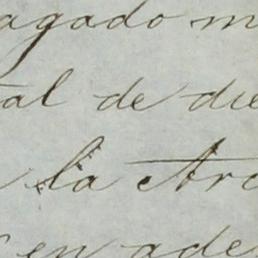 agado m
tal de die
la Arc
en ade